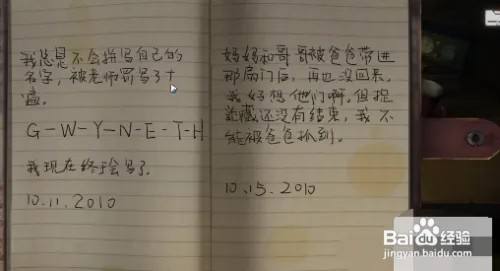 我总是不会拼写自己的
名字，被老师罚写了十
遍。
G-W-Y-N-E-T-H
我现在终于会写了。
10.11.2010
妈妈和哥哥被爸爸带进
那扇门后，再也没回来。
我好想他们啊。但捉
迷藏还没有结束，我不
能被爸爸抓到。
10.15.2010
Baidu经验
jingyan.baidu.com